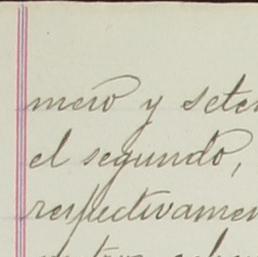 mero y seten
el segundo,
respectivamen